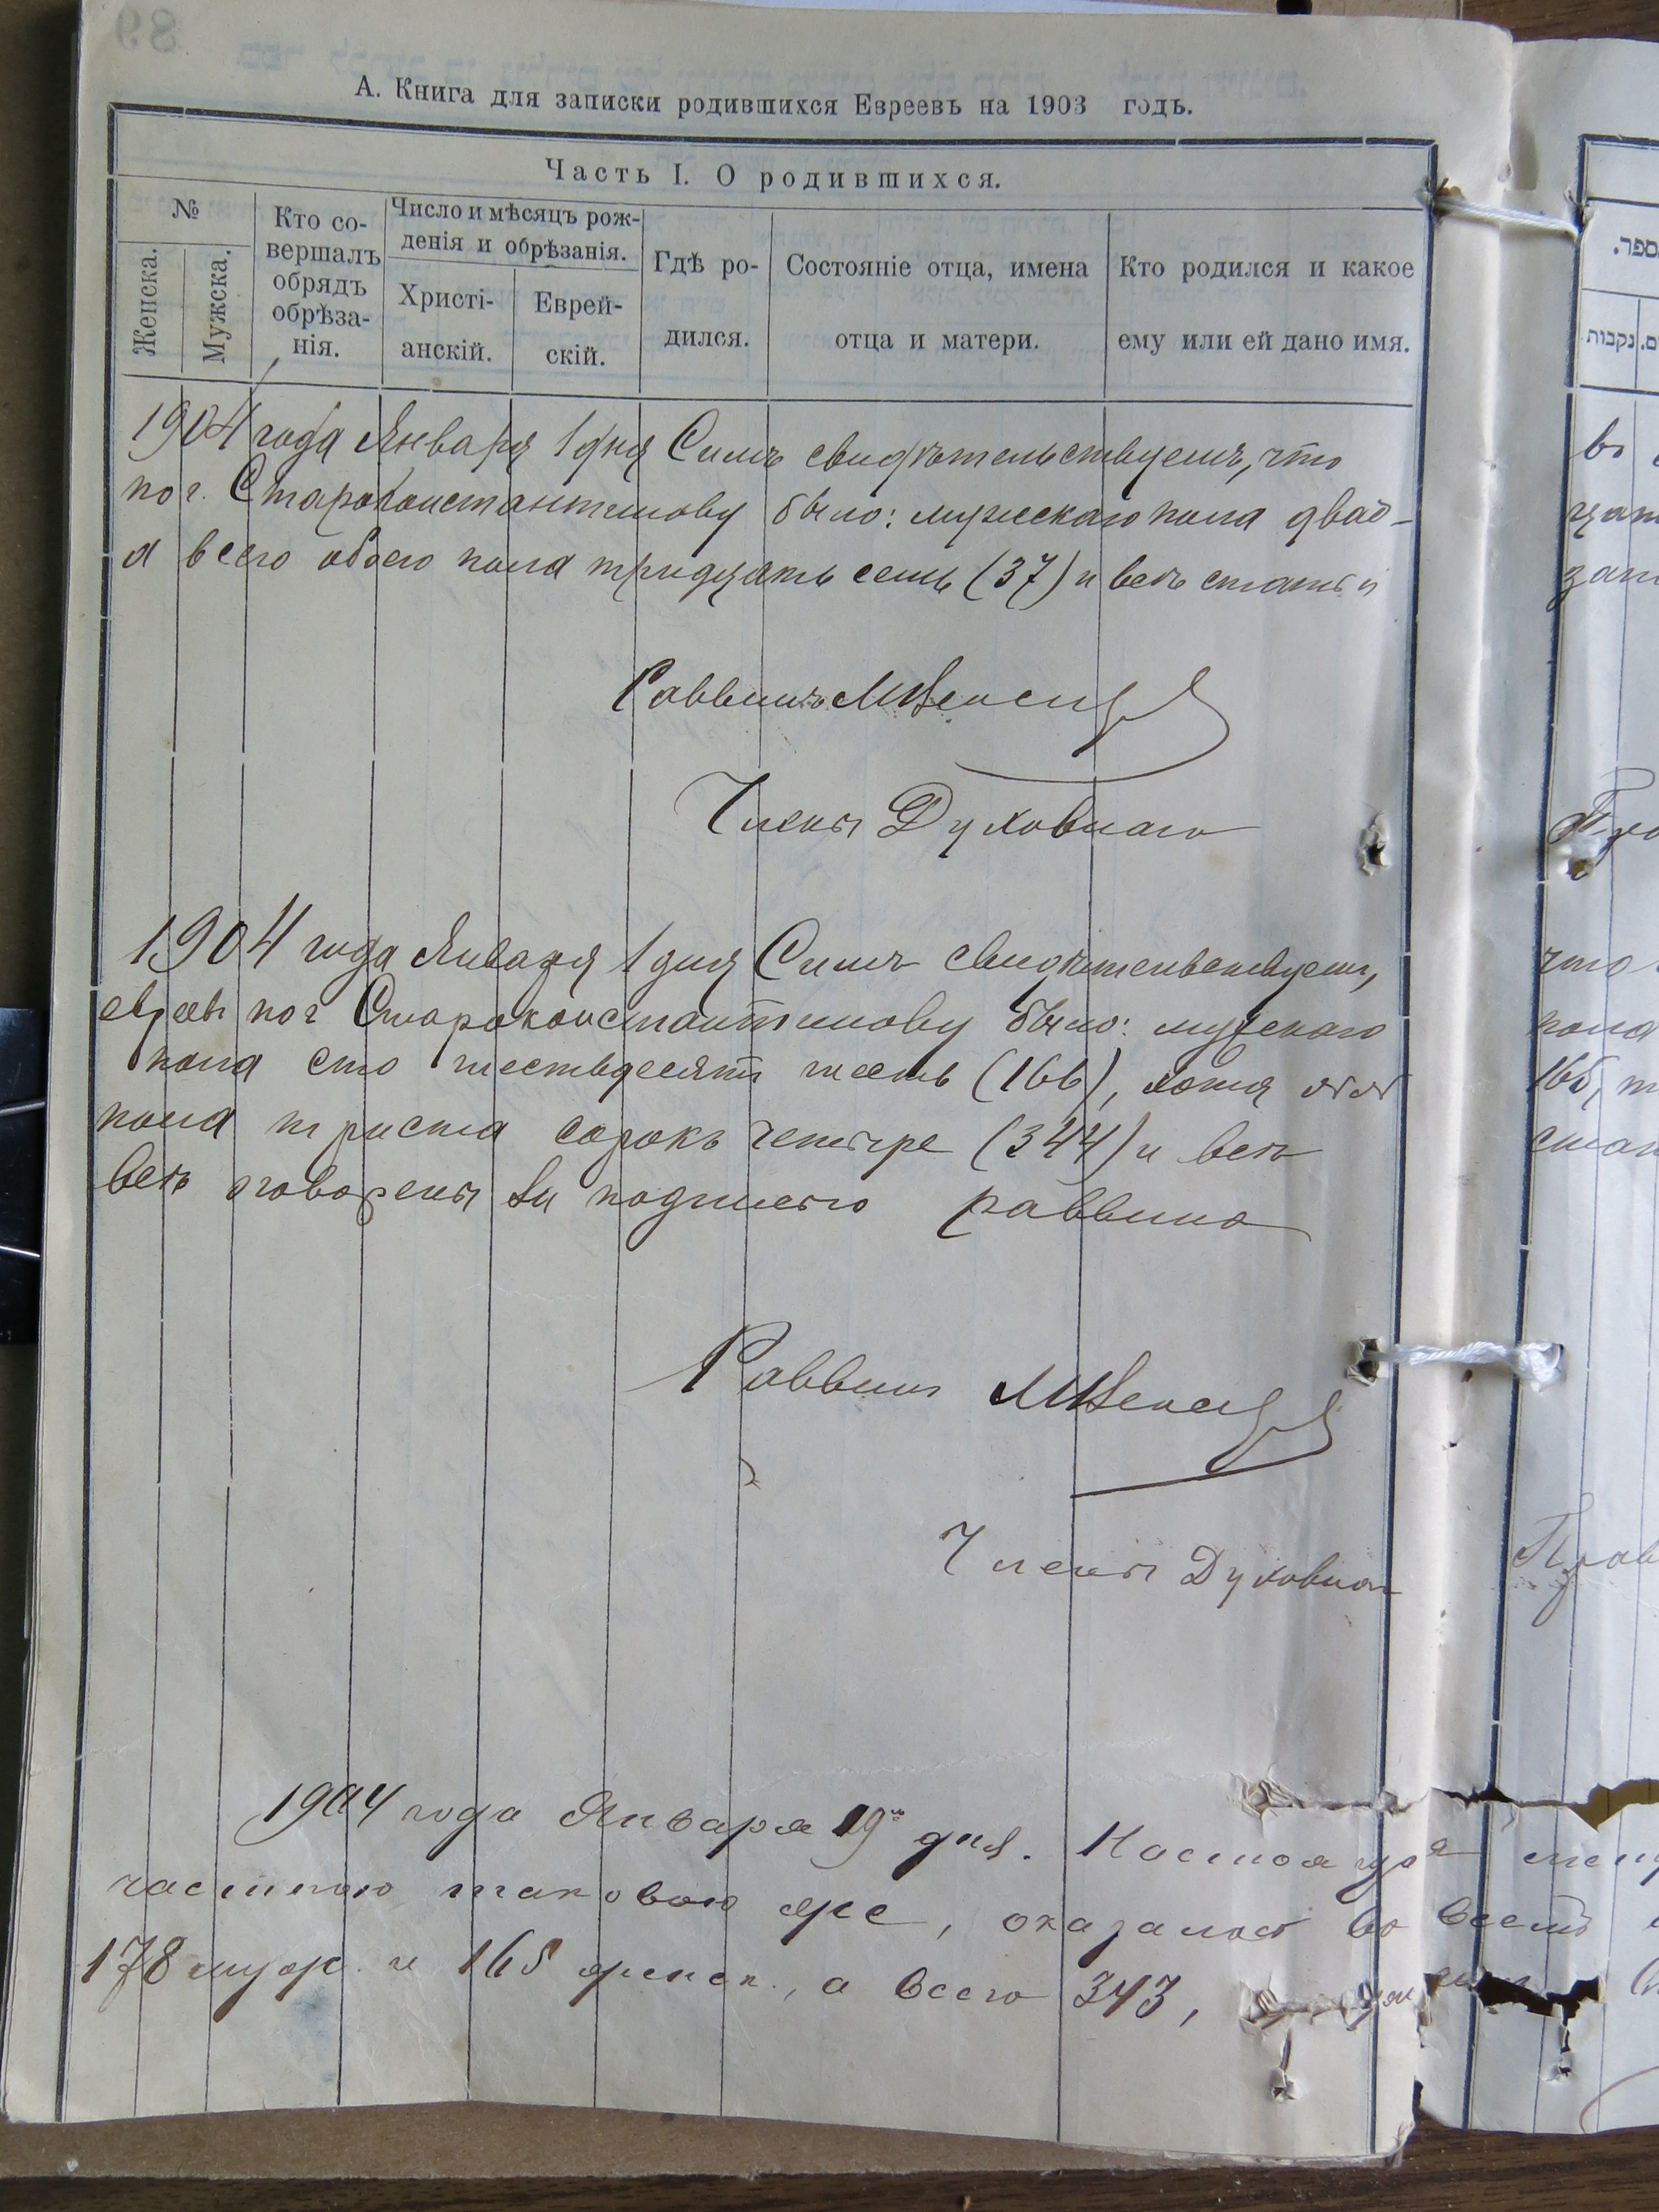 89
А. Книга для записки родившихся Евреевъ на 1903 годъ.
Часть I. О родившихся.
№
Женска.
Мужска.
Кто со-
вершалъ
обрядъ
обрѣза-
нія.
Число и мѣсяцъ рож-
денія и обрѣзанія.
Христі-
анскій.
Еврей-
скій.
Гдѣ ро-
дился.
Состояніе отца, имена
отца и матери.
Кто родился и какое
ему или ей дано имя.
1904 года Января 1 дня Симъ свидѣтельствуемъ, что
по г. Староконстантинову было: мужескаго пола двад-
а всего обоего пола тридцать семь (37) и всѣ статьи
Раввинъ
Члены Духовнаго
1904 года Января 1 дня Симъ свидѣтельствуемъ,
евреевъ по г Староконстантинову было: мужескаго
пола сто шестьдесятъ шесть (166), хотя №№
пола триста сорокъ четыре (344) и всѣ
всѣ оговорены за подписью раввина
Раввинъ
Члены Духовнаго
1904 года Января 19го дня. Настоящая
частною таковою же, оказалось во всемъ
178 муж. и 165 женск., а всего 343,
ספר.
נקבות
во
что
пола
165,